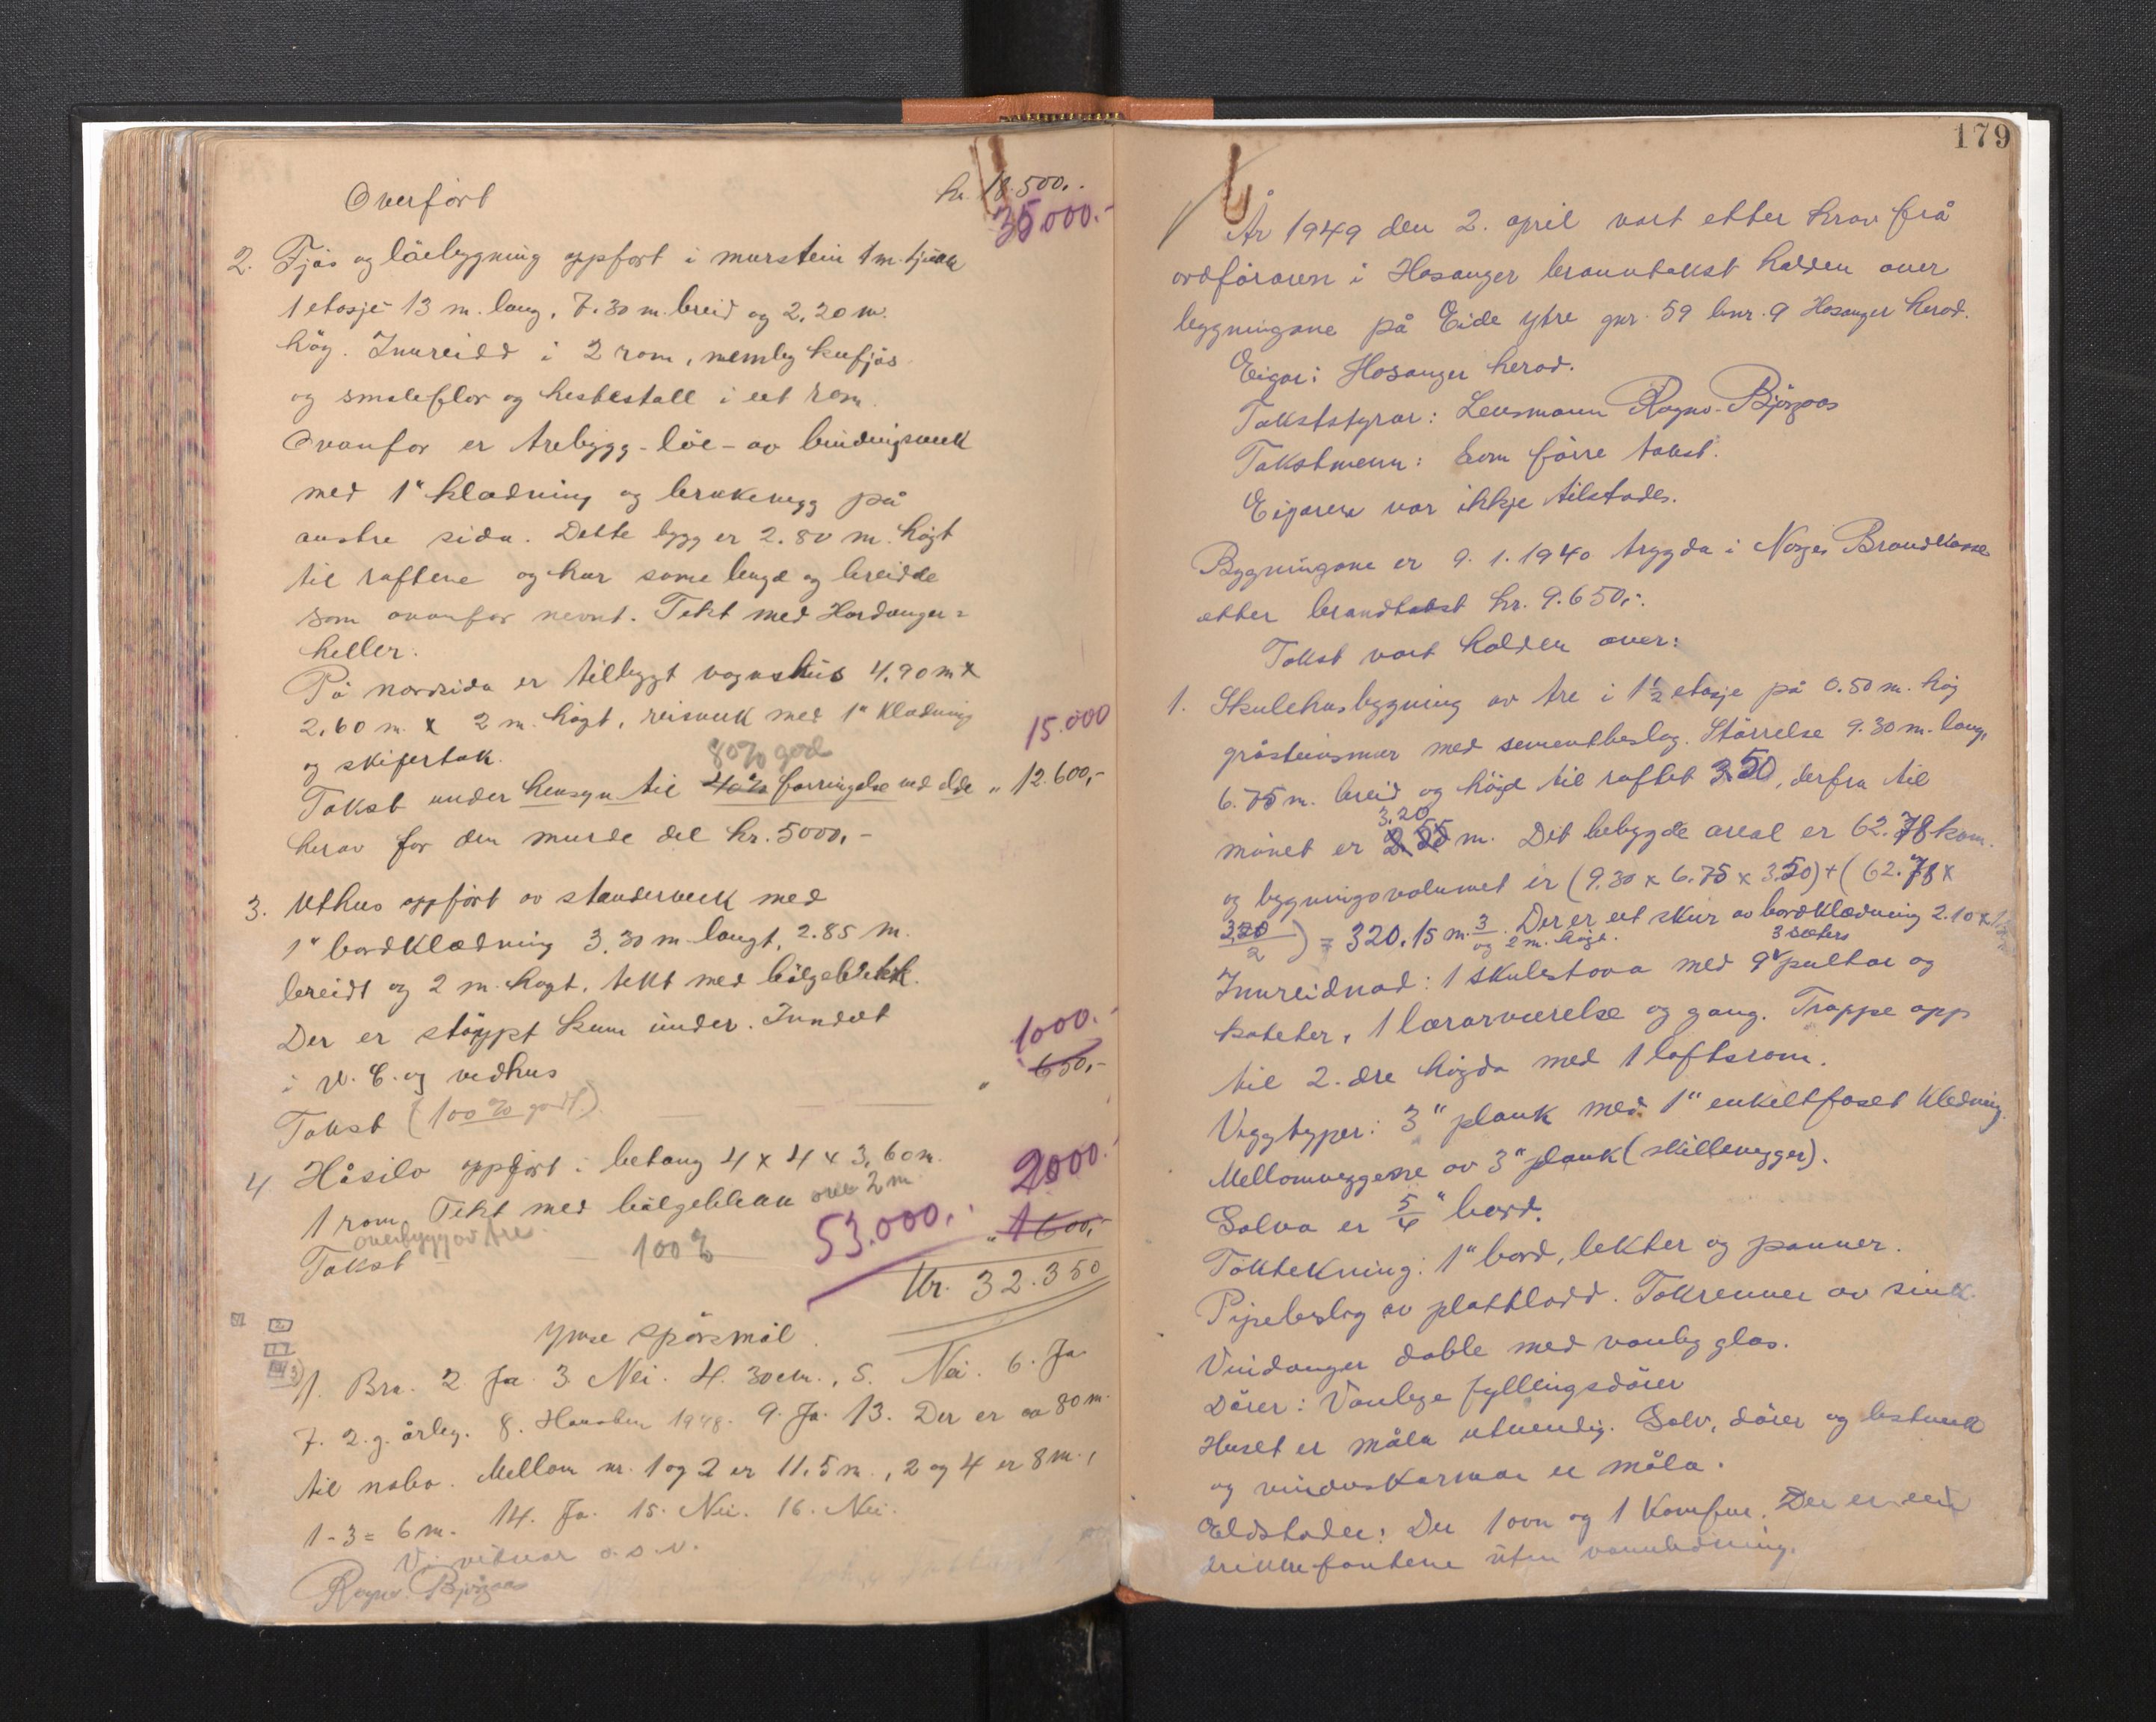 Overført kr. 18.500,-
35000.-
2. Fjøs og løebygning oppført i murstein 1 m. tjukk
1 etasje 13 m. lang, 7.30 m. breid og 2,20 m.
høg. Innreidd i 2 rom, nemleg kufjøs
og smaleflor og hestestall i eit rom.
Ovanfor er trebygg - löe - av bindingsverk
med 1" kledning og brukevegg på
austre sida. Dette bygg er 2.80 m. högt
til raftene og har same lengd og breidde
som ovanfor nevnt. Tekt med Hardanger=
heller.
På nordsida er tilbygt vognshus 4,90 m x
2,60 m. x 2 m. högt, reisverk med 1" kledning
og skifertak. 15.000
80% god
Takst under hensyn til 40% forringelse ved elde " 12.600,-
herav for den murde del kr. 5000,-
3. Uthus oppført av standerverk med
1" bordkledning 3.30 m langt, 2.85 m.
breidt og 2 m. høgt, tekt med bölgeblekk.
Der er støypt kum under. Inndelt 1000.-
i W.C. og vedhus " 650,-
Takst (100% godt)
4 Håsilo oppført i betong 4 x 4 x 3,60 m. 2000.-
1 rom Tekt med bölgeblekk over 2 m
overbygg av tre 53.000,- " 1600,-
Takst 100%
Kr. 32.350
Ymse spörsmål.
1. Bra. 2 Ja. 3. Nei. 4. 30 cm., 5. Nei. 6. Ja
7. 2 g. årleg. 8. Hausten 1948. 9. Ja. 13. Der er ca 80 m.
til nabo. Mellom nr. 1 og 2 er 11.5 m., 2 og 4 er 8 m.,
1-3 = 6 m. 14. Ja. 15. Nei. 16. Nei.
Vi vitnar o.s.v.
Ragnv. Bjørgaas
179
År 1949 den 2. april vart etter krav frå
ordføraren i Hosanger branntakst halden over
bygningane på Eide ytre gnr. 59 bnr. 9 Hosanger herad.
Eigar: Hosanger herad.
Takststyrar: Lensmann Ragnv. Bjørgaas
Takstmenn: Som förre takst.
Eigaren var ikkje tilstades.
Bygningane er 9.1.1940 trygda i Norges Brandkasse
etter brandtakst kr. 9.650,-.
Takst vart halden over:
1. Skulehusbygning av tre i 1 1/2 etasje på 0.50 m. høg
gråsteinsmur med sementbeslag. Størrelse 9.30 m. lang,
6.75 m. breid og högd til raftet 3.50, derfra til
3.20
mønet er m. Det bebygde areal er 62.78 kvm.
og bygningsvolumet er (9.30 x 6.75 x 3.50) + (62.78 x
3,20/2) = 320.15 m.3. Der er eit skur av bordkledning 2.10 x
og 2 m. høgt. 3 seters
Innreidnad: 1 skulestova med 9 pultar og
kateter, 1 lærarværelse og gang. Trappe opp
til 2. dre högda med 1 loftsrom.
Veggtyper: 3" plank med 1" enkeltfaset kledning.
Mellomveggene av 3" plank (skillevegger).
Golva er 5/4" bord.
Taktekning: 1" bord, lekter og panner.
Pipebeslag av platbladd. Takrenner av sink.
Vindauger doble med vanleg glas.
Dörer: Vanlege fyllingsdörer
Huset er måla utvendig. Golv, dörer og listverk
og vinduskarmar er måla.
Eldstader: Der 1 ovn og 1 komfur. Der er ein
drikkefontene uten vannledning.